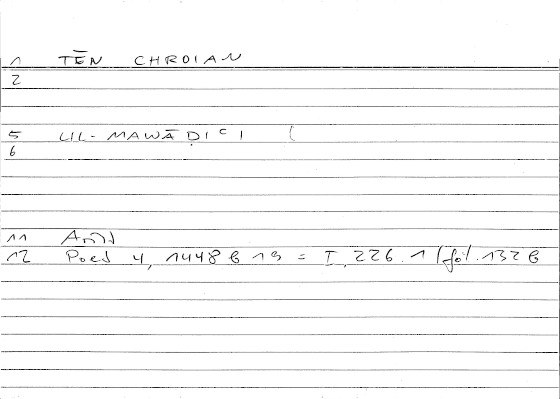 1 TĒN CHROIAN
2
5 LIL-MAWĀḌIʿI (
6
11 Arab
12 Poet 4, 1448 b 19 = I, 226.1 (fol. 132 b